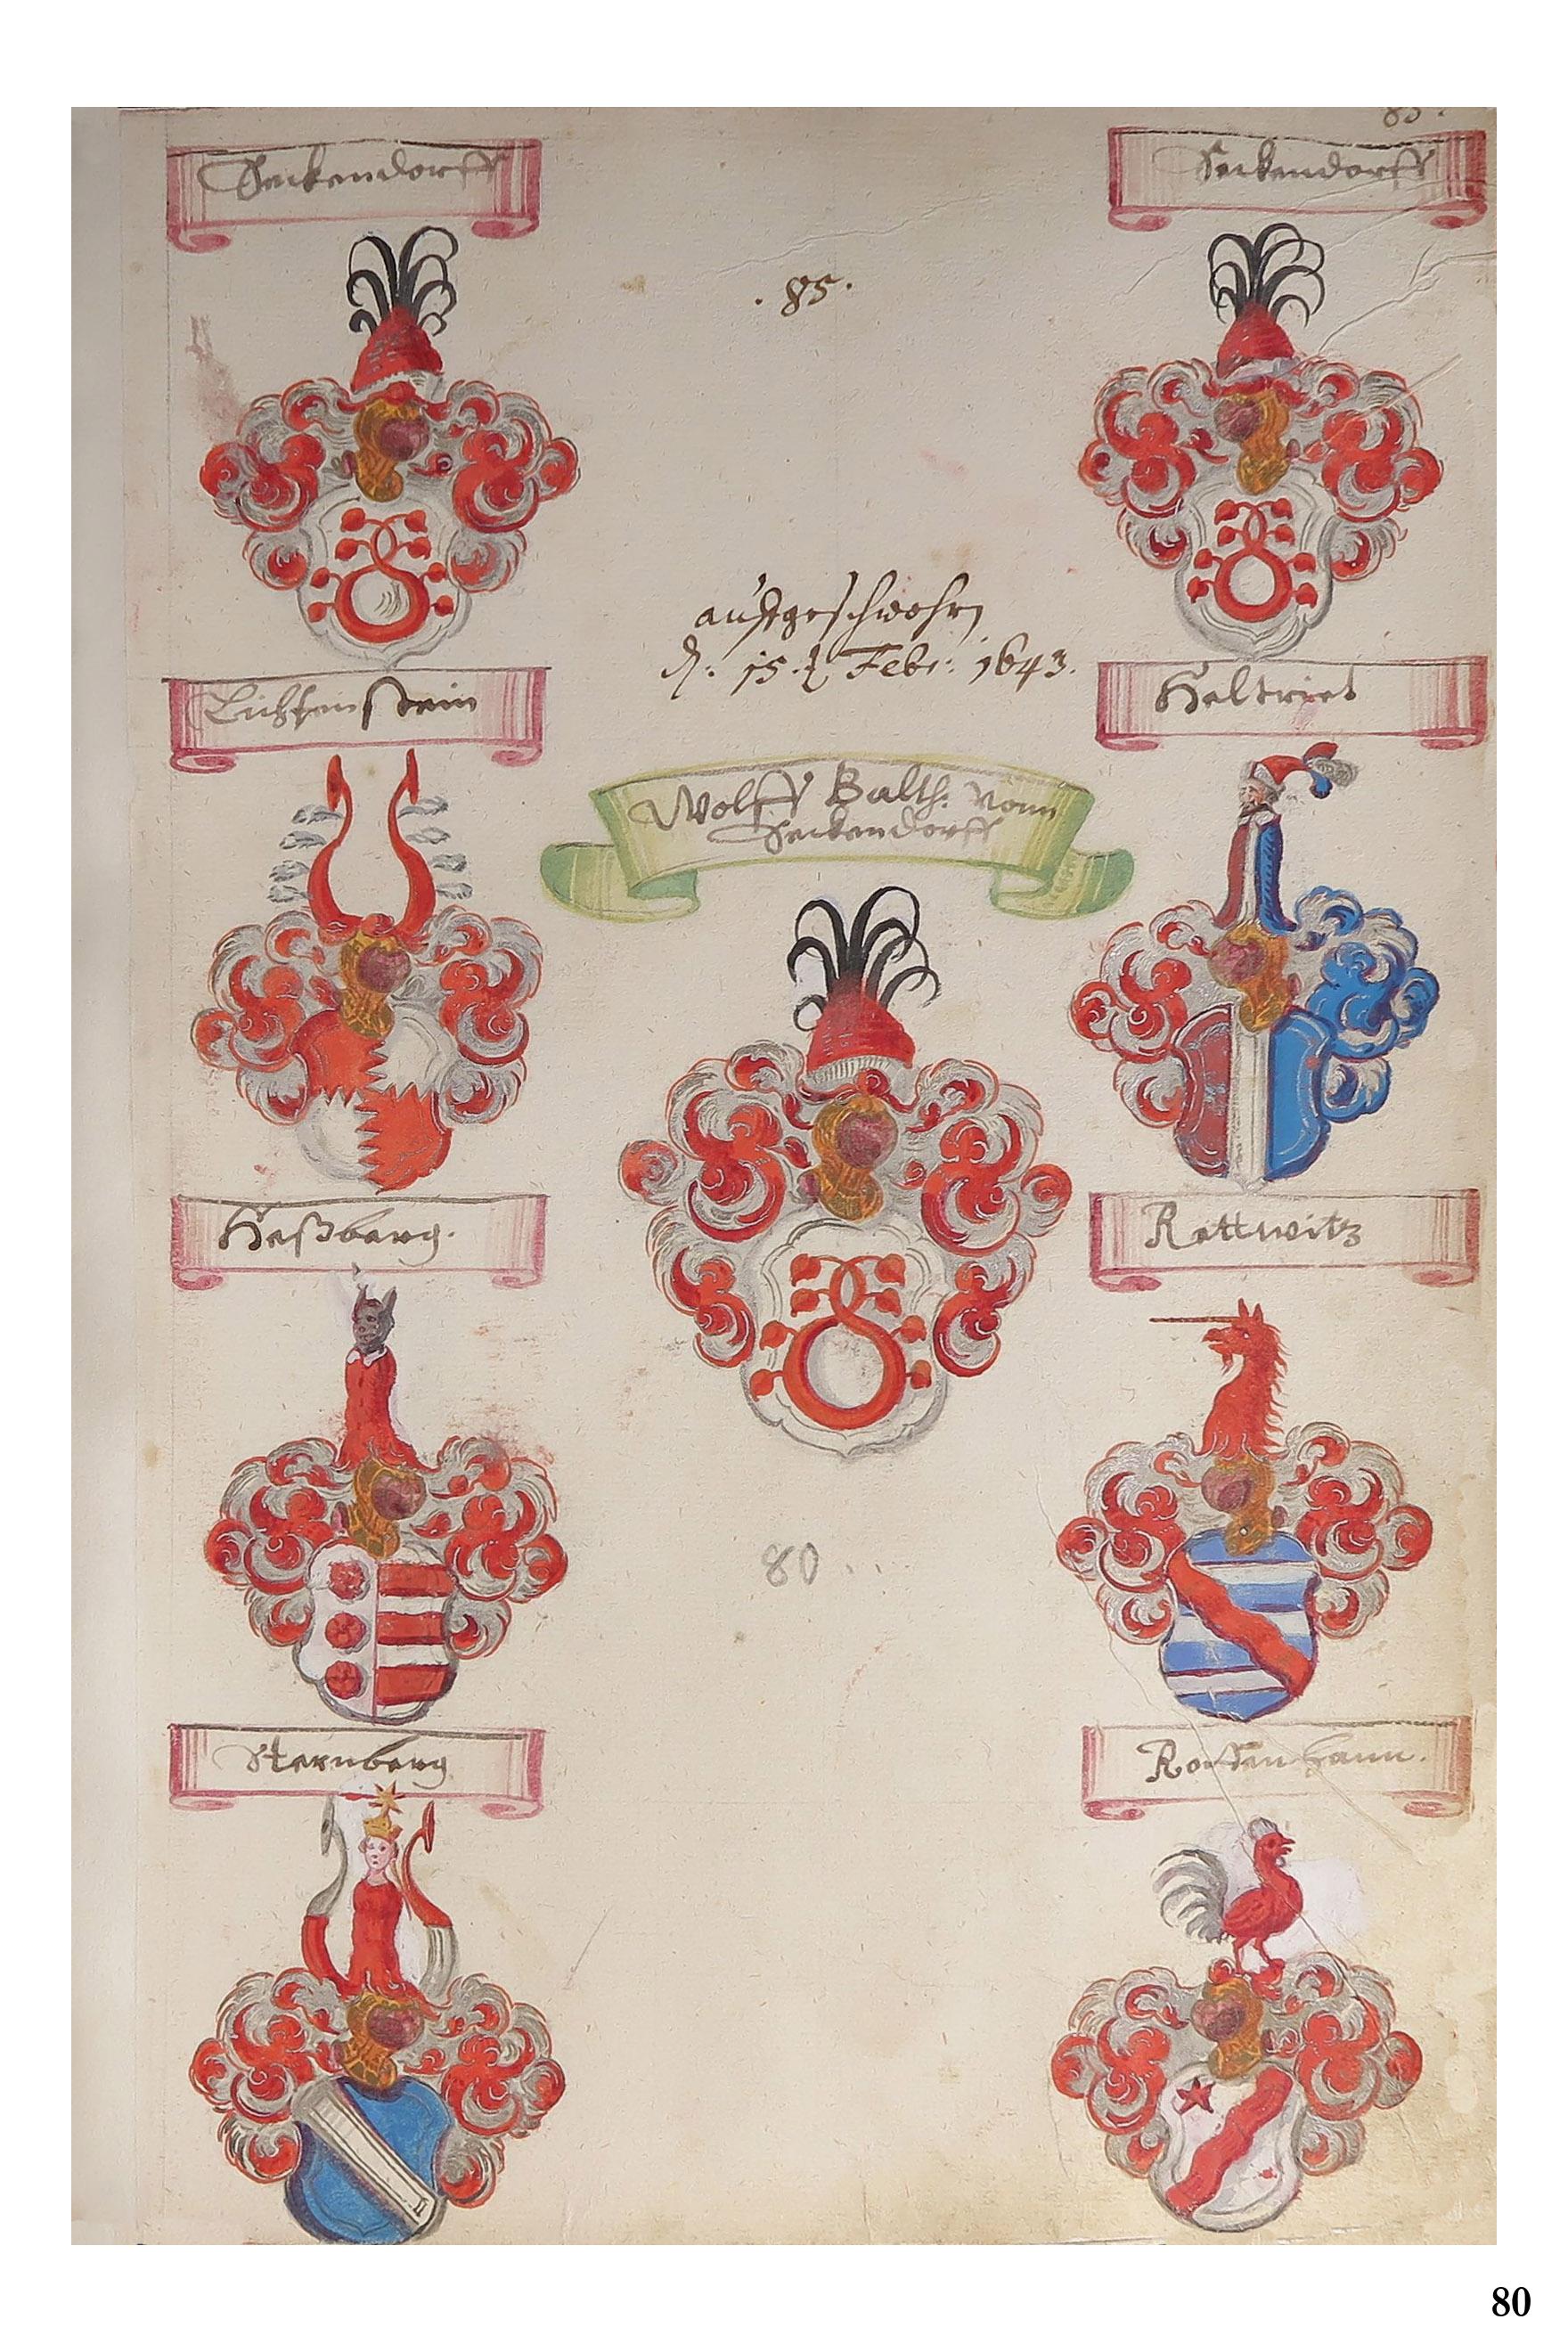 85.
Seckendorff
Seckendorff
. 85 .
auffgeschwohrn
d: 15. Febr: 1643.
Liechtenstein
Heltriet
Wolff Balth: Vonn
Seckendorff
Heßberg.
Rettwitz
80 . .
Sternberg
Rottenhann.
80